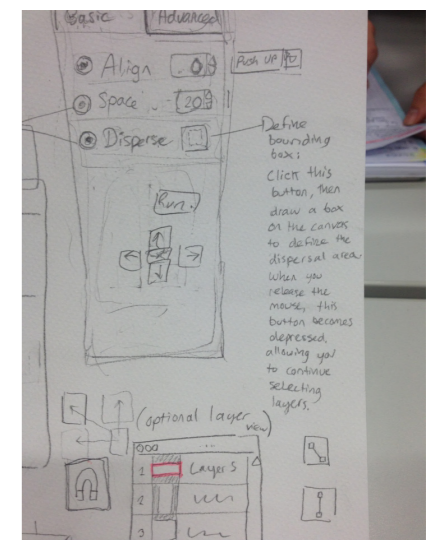 Basic Advanced
Align 0
Push up
Space 20
Disperse
Define
bounding
box:
Click this
button, then
draw a box
on the canvas
to define the
dispersal area.
When you
release the
mouse, this
button becomes
depressed,
allowing you
to continue
selecting
layers.
Run.
(optional layer view)
1 Layers
2
3